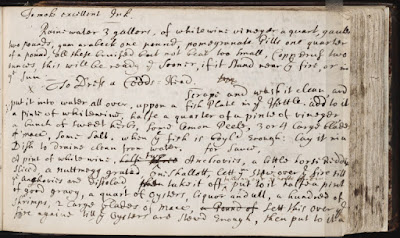 To mak excellent Ink.
Raine water 3 gallons, of white wine vineger a quart, gaules
two pounds, gum araback one pound, pomegranate Pills one quarter
of a pound, all these bruised but not beat too small, Copprus two
ounces, this will be ready ye sooner, if it stand near ye fire, or in
ye Sun
x To Dress a Codds-Head.
Scrape and wash it clean and
put it into water all over, uppon a fish Plate in ye Kettle, add to it
a pinte of white wine, halfe a quarter of a pinte of vineger
a bunch of sweet herbs, some Lemon Peele, 3 or 4 large blades
of mace, some Salt, when ye fish is boyl'd Enough: Lay it in a
Dish to draine clean from water. for Sawce,
A pint of white wine, Anchovies, a little horse Raddish
sliced, a nuttmegg grated, one shallott, lett ye stew over ye fire till
ye anchovies are Dissolved then take it off, put to it halfe a pint
of good gravy, a quart of oysters, liquor and all, a hundred of
shrimps, 2 large blades of mace, Lett this over
fire againe till ye oysters are stewed Enough, then put to it